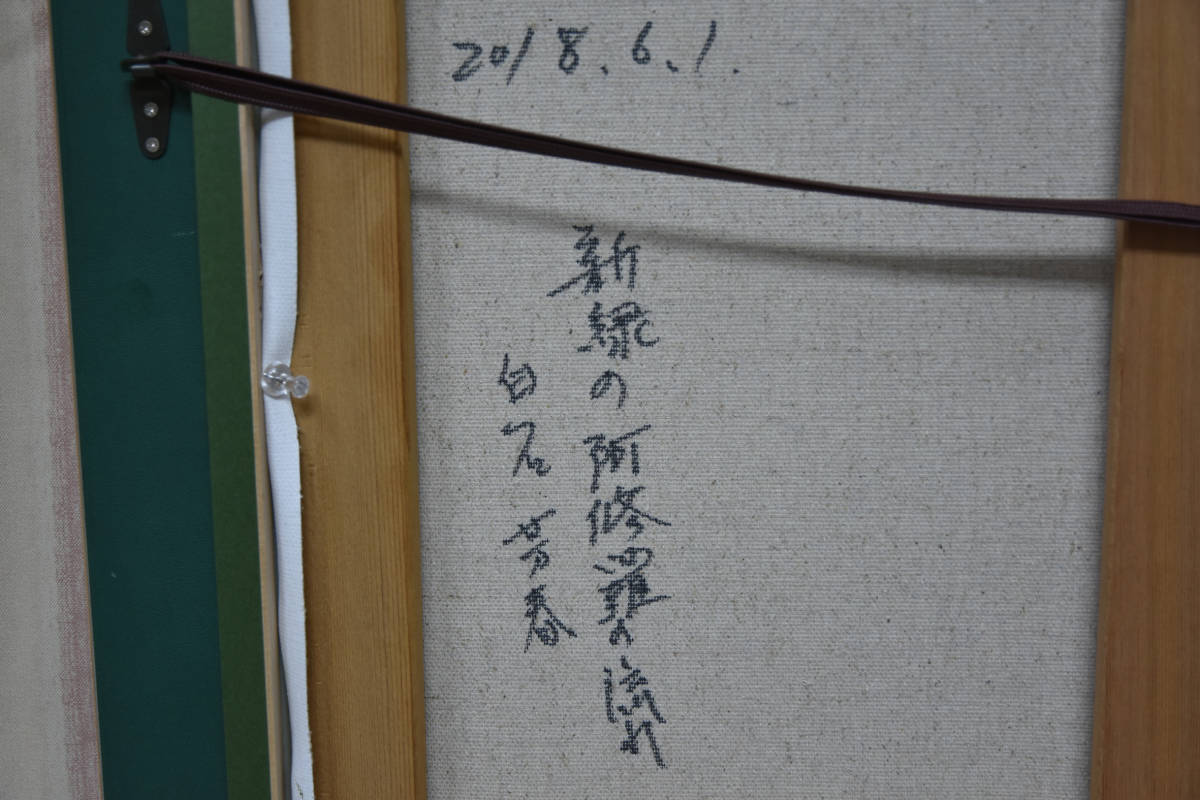 2018.6.1.
新緑の阿修羅の流れ
白石芳春